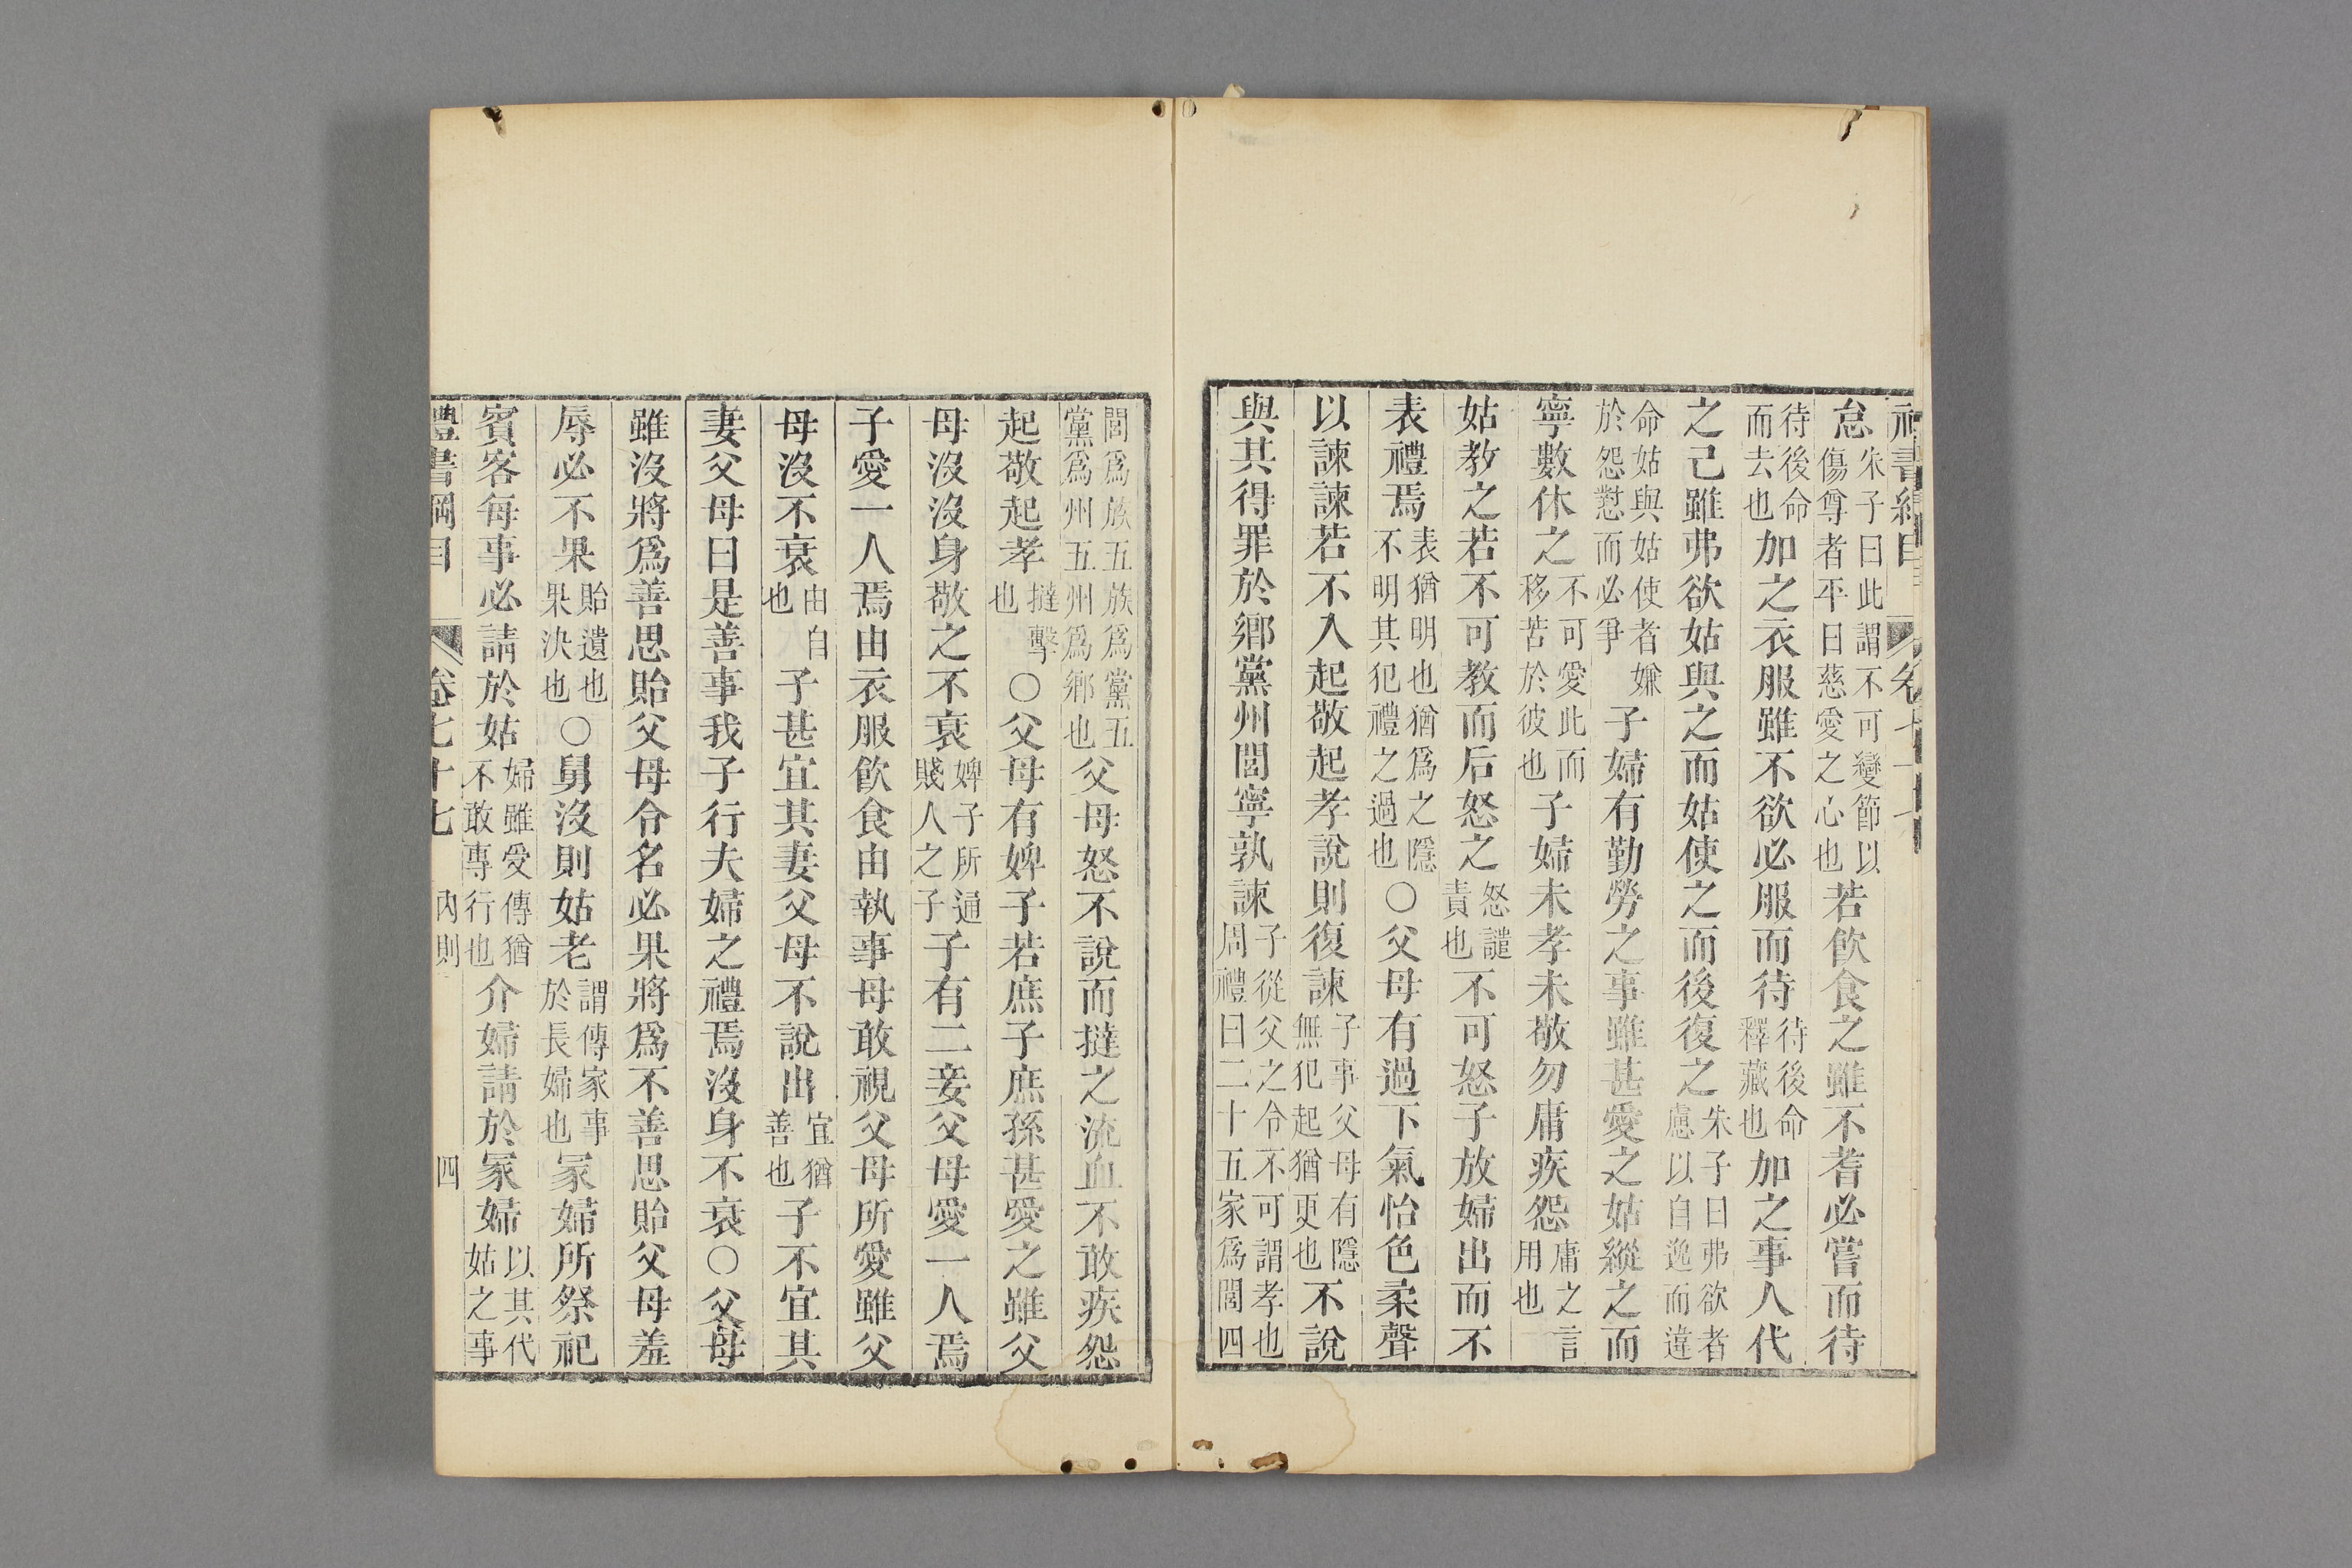 禮書綱目 卷七十七
怠朱子曰此謂不可變節以傷尊者平日慈愛之心也若飮食之雖不耆必嘗而待
待後命而去也加之衣服雖不欲必服而待待後命釋藏也加之事人代
之己雖弗欲姑與之而姑使之而後復之朱子曰弗欲者慮以自逸而違
命姑與姑使者嫌於怨懟而必爭子婦有勤勞之事雖甚愛之姑縱之而
寧數休之不可愛此而移苦於彼也子婦未孝未敬勿庸疾怨庸之言用也
姑教之若不可教而后怒之怒譴責也不可怒子放婦出而不
表禮焉表猶明也猶爲之隱不明其犯禮之過也○父母有過下氣怡色柔聲
以諫諫若不入起敬起孝說則復諫子事父母有隱無犯起猶更也不說
與其得罪於鄉黨州閭寧孰諫子從父之令不可謂孝也周禮曰二十五家爲閭四
閭爲族五族爲黨五黨爲州五州爲鄉也父母怒不說而撻之流血不敢疾怨
起敬起孝撻擊也○父母有婢子若庶子庶孫甚愛之雖父
母沒沒身敬之不衰婢子所通賤人之子子有二妾父母愛一人焉
子愛一人焉由衣服飮食由執事毋敢視父母所愛雖父
母沒不衰由自也子甚宜其妻父母不說出宜猶善也子不宜其
妻父母曰是善事我子行夫婦之禮焉沒身不衰○父母
雖沒將爲善思貽父母令名必果將爲不善思貽父母羞
辱必不果貽遺也果決也○舅沒則姑老謂傳家事於長婦也冢婦所祭祀
賓客每事必請於姑婦雖愛傳猶不敢專行也介婦請於冢婦以其代姑之事
禮書綱目 卷七十七 內則 四